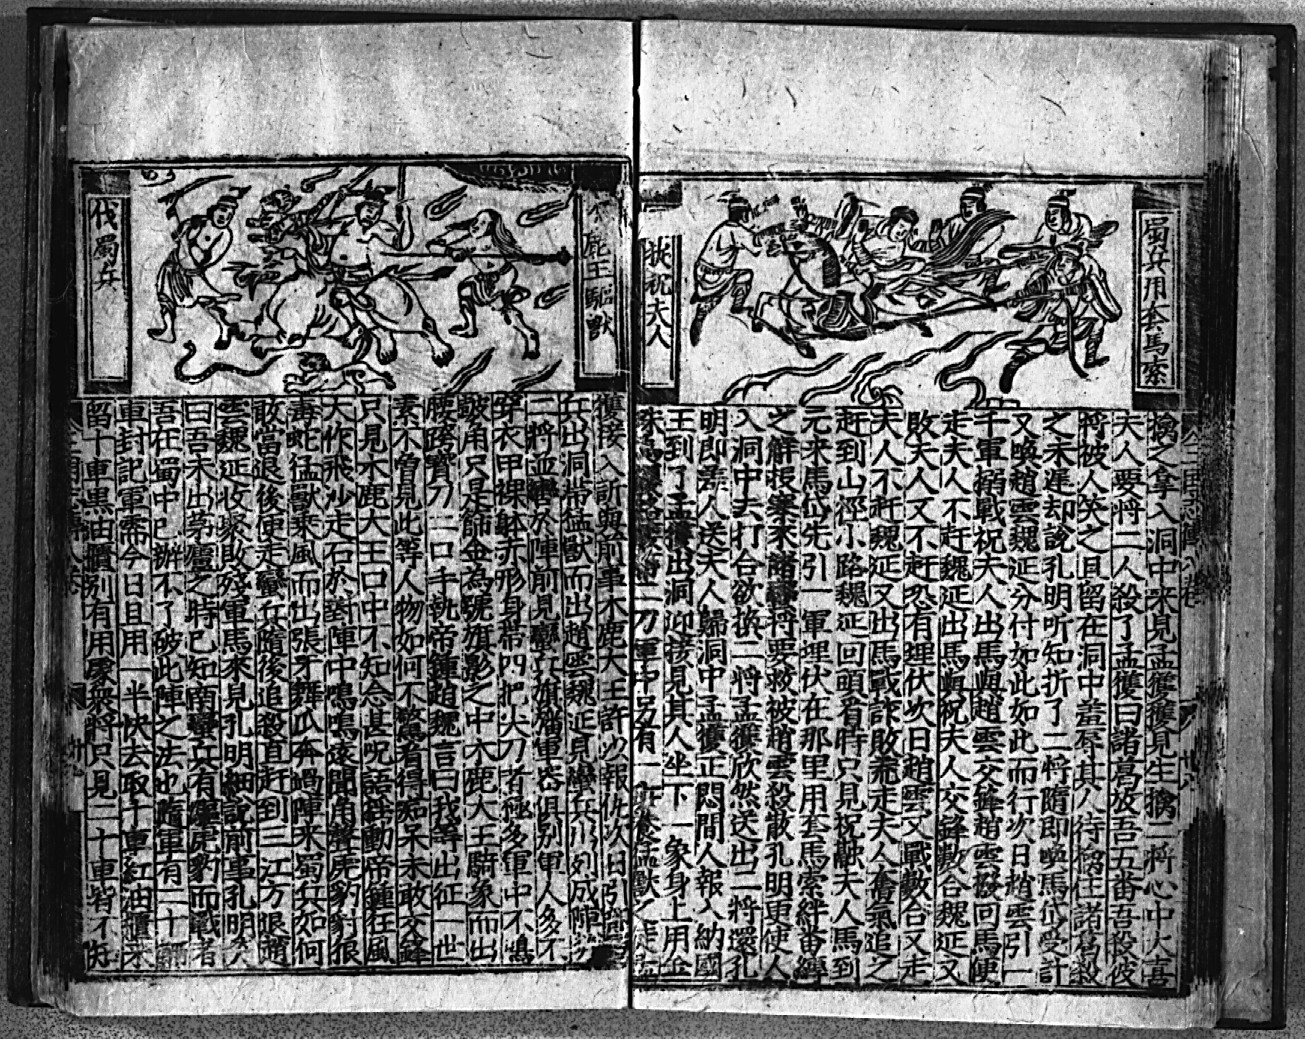 蜀兵用套馬索
挾祝夫人
擒之拿入洞中來見孟獲獲見生擒二將心中大喜
夫人要將二人殺了孟獲曰諸葛放吾五番吾殺彼
將被人笑之且留在洞中羞辱其人待擒住諸葛殺
之未遲却說孔明听知折了二將隨即喚馬岱受計
又喚趙雲魏延分付如此如此而行次日趙雲引一
千軍搦戰祝夫人出馬與趙雲交鋒趙雲撥回馬便
走夫人不赶魏延出馬與祝夫人交鋒數合魏延又
敗夫人又不赶恐有埋伏次日趙雲又戰數合又走
夫人不赶魏延又出馬戰詐敗荒走夫人奮氣追之
赶到山徑小路魏延回頭看時只見祝融夫人馬到
元來馬岱先引一軍埋伏在那里用套馬索絆番縛
之解投寨來諸蠻將要救被趙雲殺散孔明更使人
入洞中去打合欲換二將孟獲欣然送出二將還孔
明即差人送夫人歸洞中孟獲正悶間人報入納國
王到了孟獲出洞迎接見其人坐下一象身上用金
刀軍中另有一
鹿王驅獸
伐蜀兵
獲接入訴與前事木鹿大王許以報仇次日引
兵出洞帶猛獸而出趙雲魏延見蠻兵川列成陣
二將並轡於陣前見蠻兵旗幡軍器俱別軍人多不
穿衣甲裸躰赤形身帶四把尖刀者極多軍中不鳴
皷角只是篩金為號旗影之中木鹿大王騎象而出
腰跨寶刀二口手執帝鍾趙魏言曰我等出征一世
素不曾見此等人物如何不驚看得痴呆未敢交鋒
只見木鹿大王口中不知念甚呪語搖動帝鍾狂風
大作飛沙走石於對陣中鳴鳴遠聞角聲虎豹豺狼
毒蛇猛獸乘風而出張牙舞瓜奔過陣來蜀兵如何
敢當退後便走蠻兵隨後追殺直赶到三江方退趙
雲魏延收聚敗殘軍馬來見孔明細說前事孔明
曰吾未出茅廬之時已知南蠻兵有驅虎豹而戰者
吾在蜀中已辦不了破此陣之法也隨軍有二十輛
車封記軍需今日且用一半快去取十車紅油櫃來
留十車黑油櫃別有用處衆將只見二十車皆不知